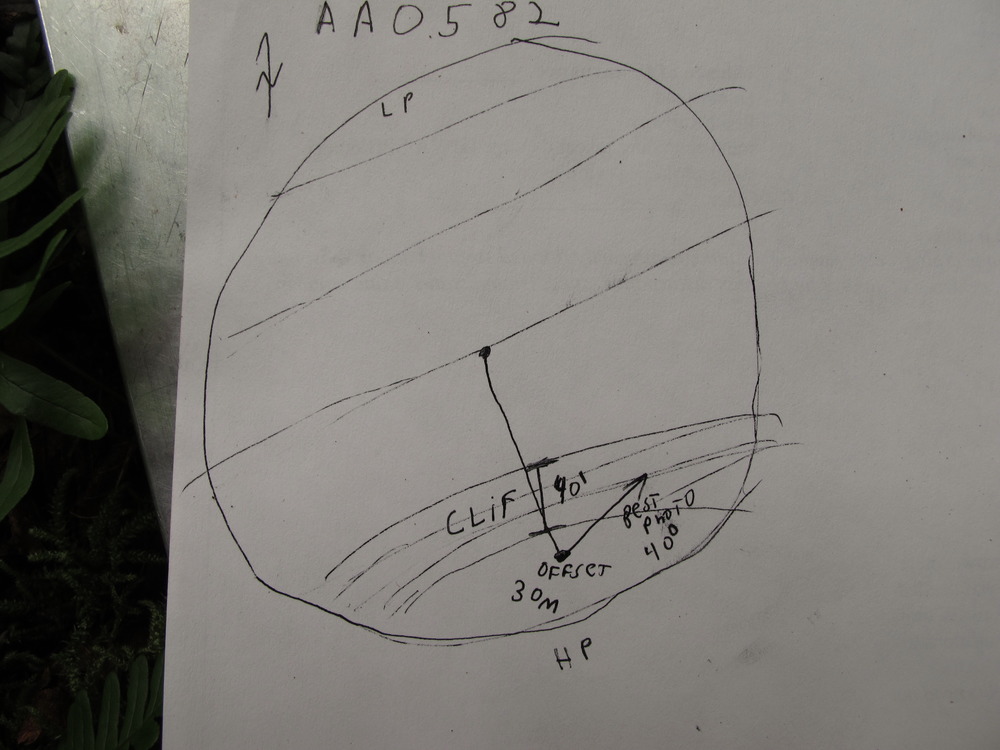 AAO.582
LP
CLiF
40'
BEST
PHOTO
40°
OFFSET
30M
HP